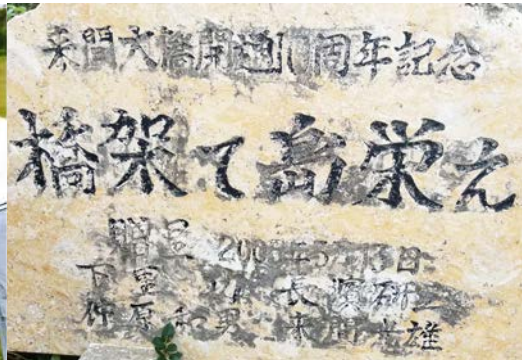 来間大橋開通10周年記念
橋架て島栄え
贈呈 2005年3月13日
下里 長濱
仲原和男 来間 雄